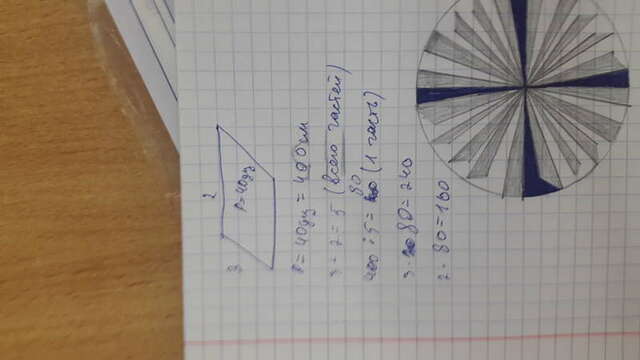 2
3
P=40дм
P=40дм = 400см
3+2=5 (всего частей)
400:5=80 (1 часть)
3·80=240
2·80=160